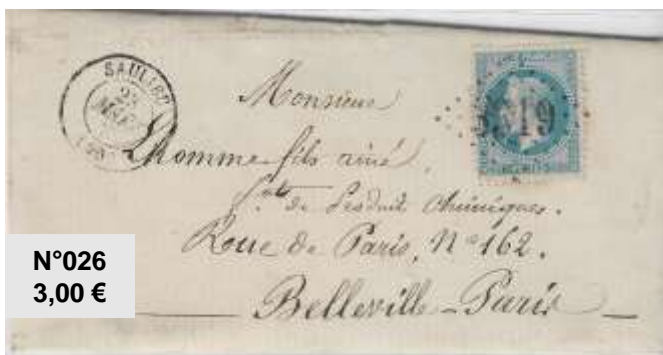 SAULIEU
Monsieur
Lhomme fils ainé,
de Produits Chimiques.
Roue de Paris, N° 162.
Belleville-Paris
3319
N°026
3,00 €